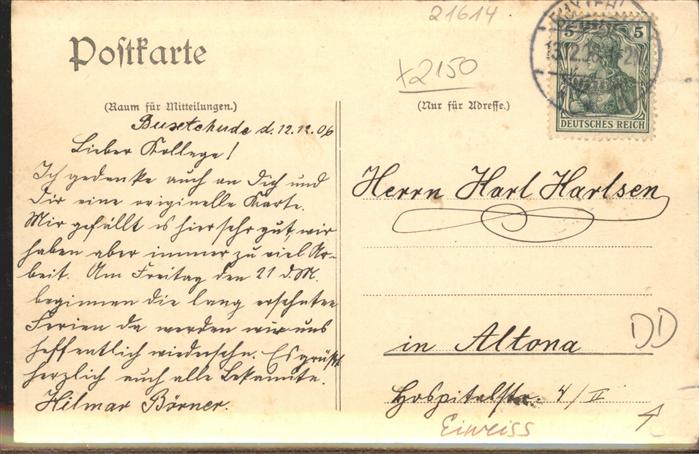 21614
Postkarte
x2150
5 5
DEUTSCHES REICH
(Raum für Mitteilungen.)
(Nur für Adresse.)
Buxtehude d. 12.12.06
Lieber Kollege!
Ich gedenke auch an Dich und
Dir eine originelle Karte.
Mir gefällt es hier sehr gut, wir
haben aber immer zu viel Ar-
beit. Am Freitag den 21 d. M.
beginnen die lang ersehnten
Ferien da werden wir uns
hoffentlich wiedersehn. Es grüßt
herzlich auch alle Bekannte.
Hilmar Börner.
Herrn Karl Karlsen
in Altona
Hospitalstr. 4/II
DD
Eiweiss